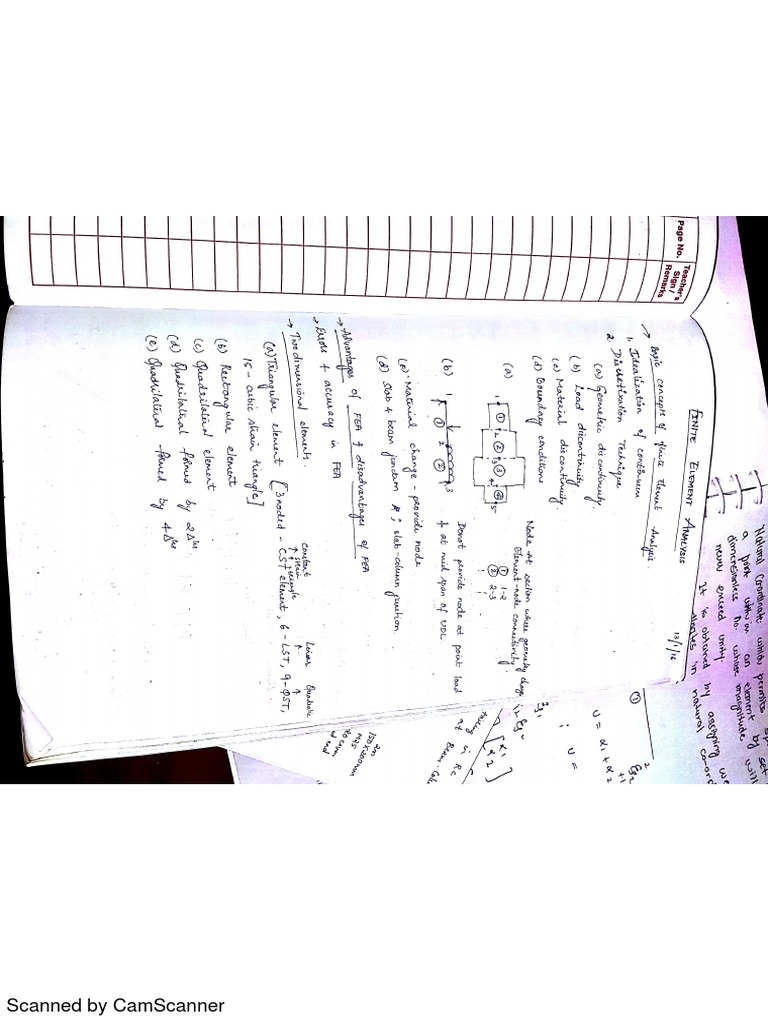 Page No.
Teacher's
Sign /
Remarks
FINITE ELEMENT ANALYSIS
13/1/16
→ Basic concepts of finite Element Analysis
1. Idealization of continuum
2. Discretization Technique
(a) Geometric discontinuity
(b) Load discontinuity
(c) Material discontinuity
(d) Boundary conditions
(a) 1 ① 2 ② 3 ③ 4 ④ 5
Node at section where geometry change
Element-node connectivity
① 1-2
② 2-3
(b) 1 ① 2 ② 3
Donot provide node at point load
& at mid span of UDL
(c) Material change - provide node
(d) Slab & beam junction ; slab-column junction
→ Advantages of FEA & disadvantages of FEA
→ Errors & accuracy in FEA
→ Two dimensional elements.
constant
strain
triangle
Linear
Quadratic
(a) Triangular element [3 noded - CST element, 6 - LST, 9 - QST,
15 - cubic strain triangle]
(b) Rectangular element
(c) Quadrilateral element
(d) Quadrilateral formed by 2 Δles
(e) Quadrilateral formed by 4 Δles
Natural Coordinate which permits
a point within an element by set
dimensionless no. whose magnitude will
never exceed unity.
It is obtained by assigning
in natural co-ord
①
2
+1
u = α1 + α2
u =
Scanned by CamScanner